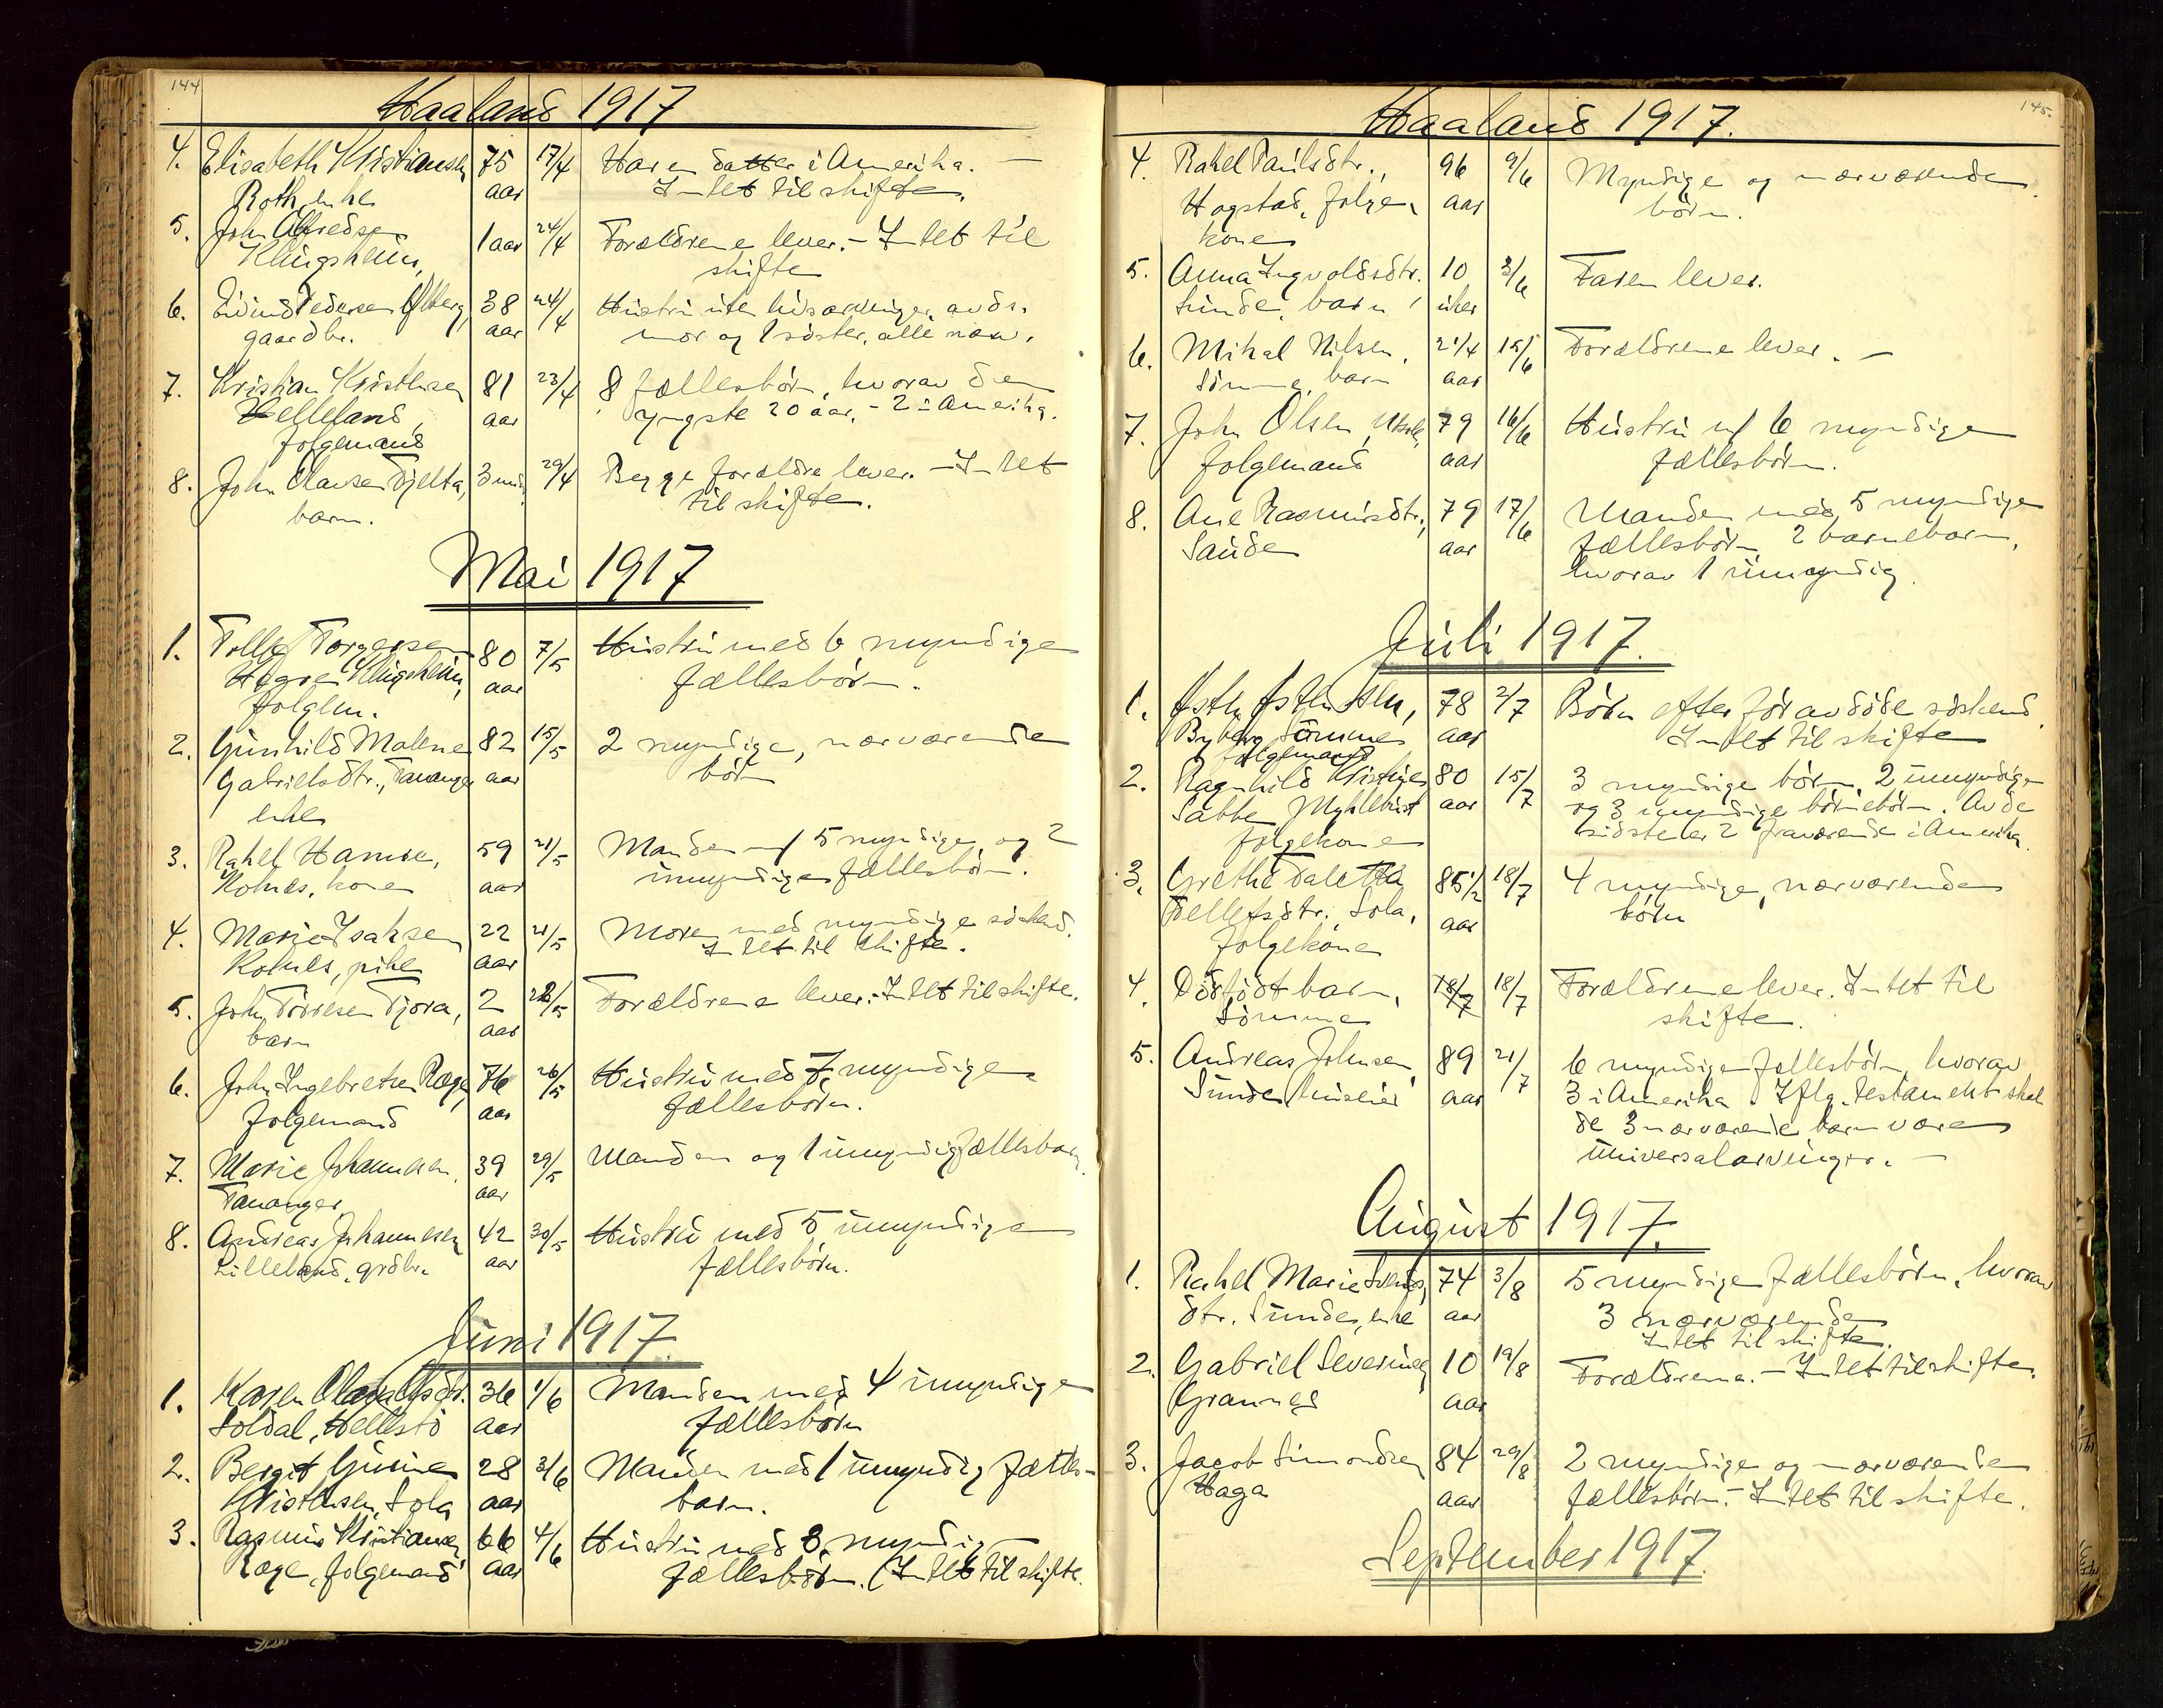 144
Haaland 1917
4. Elisabeth Kristiansen 75 17/4 Har en datter i Amerika. —
Roth, enke aar Intet til skifte.
5. John Alfredsen 1 aar 24/4 Forældrene lever. - Intet til
Klingsheim, skifte
6. Eivind Pedersen 38 24/4 Hustru uten livsarvinger, avds.
gaardbr. aar mor og 1 søster, alle nærv.
7. Kristian Kristensen 81 23/4 8 fællesbørn, hvorav den
Helleland, aar yngste 20 aar, - 2 i Amerika.
folgemand
8. John Olausen Tjelta, 3 mnd. 29/4 Begge forældre lever. - Intet
barn. til skifte.
Mai 1917
1. Tollef Torgersen 80 7/5 Hustru med 6 myndige
Klingsheim, aar fællesbørn.
folgem.
2. Gunhild Malene 82 15/5 2 myndige, nærværende
Gabrielsdtr., Tananger aar børn
enke
3. Rahel Hansen, 59 21/5 Manden m/ 5 myndige og 2
Kolnes, kone aar umyndige fællesbørn.
4. Marie Isaksen 22 21/5 Moren med myndige søskend.
Kolnes, pike aar Intet til skifte.
5. John Tørresen Tjora, 2 22/5 Forældrene lever. - Intet til skifte.
barn aar
6. John Ingebretsen Ræge, 76 26/5 Hustru med 7 myndige
folgemand aar fællesbørn.
7. Marie Johannesen, 39 29/5 Manden og 1 umyndig fællesbarn.
Tananger aar
8. Andreas Johannesen 42 30/5 Hustru med 5 umyndige
Lilleland, grdbr. aar fællesbørn.
Juni 1917
1. Karen 36 1/6 Manden med 4 umyndige
Soldal, Hellestø aar fællesbørn
2. Bergit Gurine 28 3/6 Manden med 1 umyndig fælles-
Kristensen, Sola aar barn.
3. Rasmus Kristiansen 66 4/6 Hustru med 8 myndige
Ræge, folgemand aar fællesbørn. (Intet til skifte.
145.
Haaland 1917.
4. Rahel Paulsdtr., 96 9/6 Myndige og nærværende
Hogstad, folge- aar børn.
kone
5. Anna Ingvoldsdtr. 10 3/6 Faren lever.
Sunde, barn uker
6. Mikal Nilsen, 2 1/4 15/6 Forældrene lever. —
Sømme, barn aar
7. John Olsen 79 16/6 Hustru m/ 6 myndige
folgemand aar fællesbørn.
8. Ane Rasmusdtr., 79 17/6 Manden med 5 myndige
Sande aar fællesbørn, 2 barnebarn,
hvorav 1 umyndig.
Juli 1917.
1. 78 2/7 Børn efter før avdøde søskend.
Byberg Sømme aar Intet til skifte
folgemand
2. Ragnhild 80 15/7 3 myndige børn, 2 umyndige
Sabbe Myklebust aar og 3 myndige børnebørn. Av de
folgekone sidste er 2 fraværende i Amerika.
3. Grethe Taletta 85 1/2 18/7 4 myndige, nærværende
Tellefsdtr. Sola, aar børn
folgekone
4. Dødfødt barn, 18/7 18/7 Forældrene lever. Intet til
Sømme skifte.
5. Andreas Johnsen 89 21/7 6 myndige fællesbørn, hvorav
Sunde, huseier aar 3 i Amerika. Iflg. testament skal
de 3 nærværende barn være
universalarvinger. —
August 1917.
1. Rahel Marie Svends- 74 3/8 5 myndige fællesbørn, hvorav
dtr. Sunde, enke aar 3 nærværende
Intet til skifte.
2. Gabriel Severinsen 10 19/8 Forældrene. - Intet til skifte.
Grannes aar
3. Jacob Simonsen 84 29/8 2 myndige og nærværende
Haga aar fællesbørn. - Intet til skifte.
September 1917.